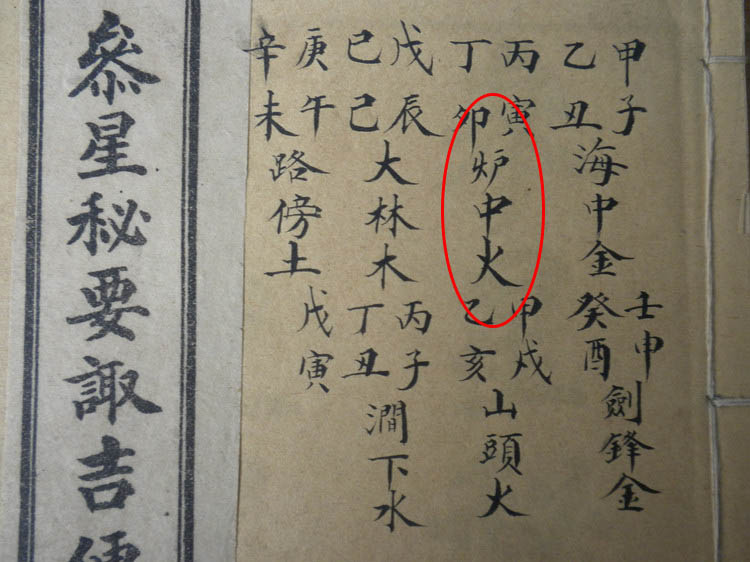 甲子
乙丑
海中金
壬申
癸酉
劍鋒金
丙寅
丁卯
炉中火
甲戌
乙亥
山頭火
戊辰
巳己
大林木
丙子
丁丑
澗下水
庚午
辛未
路傍土
戊寅
叅星秘要諏吉